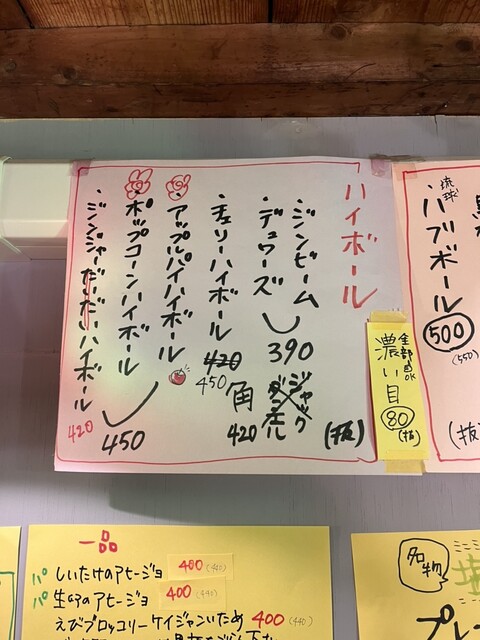 ハイボール
・ジンビーム
・デュワーズ
390
・チェリーハイボール
420
450
・アップルパイハイボール
・ポップコーンハイボール
450
・ジンジャーだいだいハイボール
420
角
420
(抜)
全部OK
濃い目
80
(抜)
琉球
・ハブボール
500
(550)
(抜)
一品
パ しいたけのアヒージョ 400 (440)
パ 生ハムのアヒージョ 400 (440)
えびブロッコリーケイジャンいため 400 (440)
名物
プレー